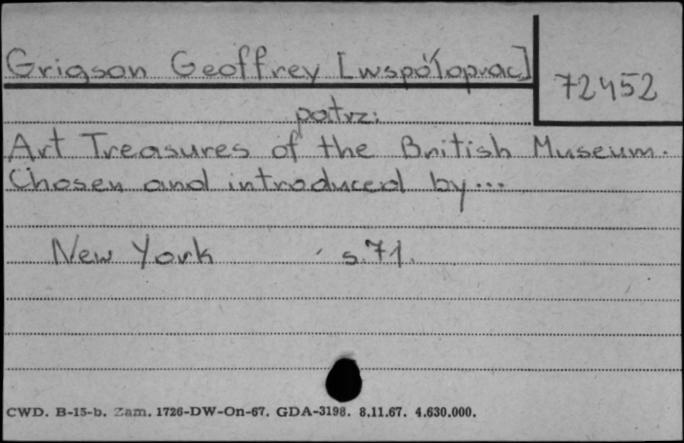 Grigson Geoffrey [współoprac]
72452
patrz:
Art Treasures of the British Museum.
Chosen and introduced by...
New York s.71.
CWD. B-15-b. Zam. 1726-DW-On-67. GDA-3198. 8.11.67. 4.630.000.